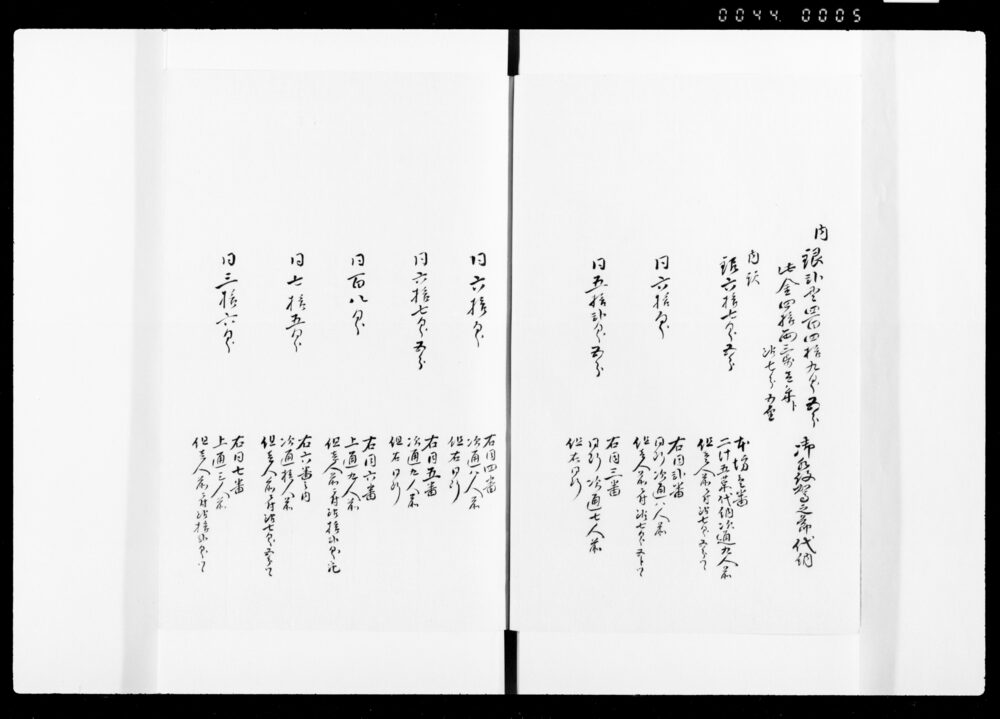 0044 0005
内
銀弐貫四百四拾九匁五分
此金四拾両三歩
銀七分五厘
代納
内訳
銀六拾七匁五分
本坊壱番
二汁五菜代納次通九人前
但壱人前ニ付銀七匁五分ツヽ
同六拾匁
右同弐番
同断次通八人前
但壱人前ニ付銀七匁五分ツヽ
同五拾弐匁五分
右同三番
同断次通七人前
但右同断
同六拾匁
右同四番
次通八人前
但右同断
同六拾七匁五分
右同五番
次通九人前
但右同断
同百八匁
右同六番
上通九人前
但壱人前ニ付銀拾弐匁
同七拾五匁
右六番之内
次通拾人前
但壱人前ニ付銀七匁五分ツヽ
同三拾六匁
右同七番
上通三人前
但壱人前ニ付銀拾弐匁ツヽ